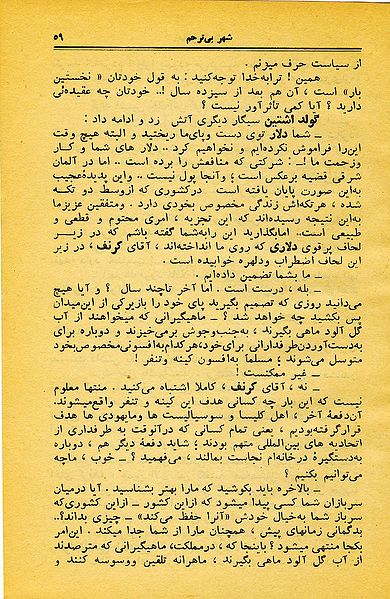 شهر بی‌ترحم ۵۹
از سیاست حرف میزنم .
همین ! ترابه‌خدا توجه‌کنید : به قول خودتان « نخستین
بار» است ، آن هم بعد از سیزده سال !.. خودتان چه عقیده‌ئی
دارید ؟ آیا کمی تأثرآور نیست ؟
گولد اشتین سیگار دیگری آتش زد و ادامه داد :
ــ شما دلار توی دست وپای‌ما ریختید و البته هیچ وقت
این‌را فراموش نکرده‌ایم و نخواهیم کرد .. دلار های شما و کار
وزحمت ما !ــ : شرکتی که منافعش را برده است .. اما در آلمان
شرقی قضیه برعکس است ؛ وآنجا پول نیست .. واین پدیدهٔ‌عجیب
به‌این صورت پایان یافته است درکشوری که ازوسط دو تکه
شده ، هرتکه‌اش زندگی مخصوص بخودی دارد . ومتفقین عزیزما
به‌این نتیجه رسیده‌اند که این تجزیه ، امری محتوم و قطعی و
طبیعی است .. امابگذارید این رابه‌شما گفته باشم که در زیر
لحاف پرقوی دلاری که روی ما انداخته‌اند ، آقای کرنف ، در زیر
این لحاف اضطراب ودلهره خوابیده است .
ــ ما بشما تضمین داده‌ایم .
ــ بله ، درست است . اما آخر تاچند سال ؟ و آیا هیچ
می‌دانید روزی که تصمیم بگیرید پای خود را بازیرکی از این‌میدان
پس بکشید چه خواهد شد ؟ ــ ماهیگیرانی که میخواهند از آب
گل آلود ماهی بگیرند ، به‌جنب‌وجوش برمی‌خیزند و دوباره برای
به‌دست‌آوردن‌طرفدارانی برای‌خود،هرکدام‌به‌افسونی‌مخصوص‌بخود
متوسل می‌شوند ؛ مسلماً به‌افسون کینه وتنفر !
ــ غیر ممکنست !
ــ نه ، آقای کرنف ، کاملا اشتباه می‌کنید . منتها معلوم
نیست که این بار چه کسانی هدف این کینه و تنفر واقع‌میشوند.
آن‌دفعهٔ آخر ، اهل کلیسا و سوسیالیست ها ومایهودی ها هدف
قرارگرفته‌بودیم ، یعنی تمام کسانی که درآنوقت به طرفداری از
اتحادیه های بین‌المللی متهم بودند ؛ شاید دفعهٔ دیگر هم ، دوباره
به‌دستگیرهٔ درخانه‌ام نجاست بمالند ، می‌فهمید ؟ ــ خوب ، ماچه
می‌توانیم بکنیم ؟
ــ بالاخره باید بکوشید که مارا بهتر بشناسید . آیا درمیان
سربازان شما کسی پیدا میشود که ازاین کشور ــ ازاین کشوری‌که
سرباز شما به‌خیال خودش «آنرا حفظ می‌کند» ــ چیزی بداند؟..
بدگمانی زمانهای پیش ، همچنان مارا از شما جدا میکند . این‌امر
بکجا منتهی میشود ؟ باینجا که ، درمملکت، ماهیگیرانی که مترصدند
از آب گل آلود ماهی بگیرند ، ماهرانه تلقین ووسوسه کنند و